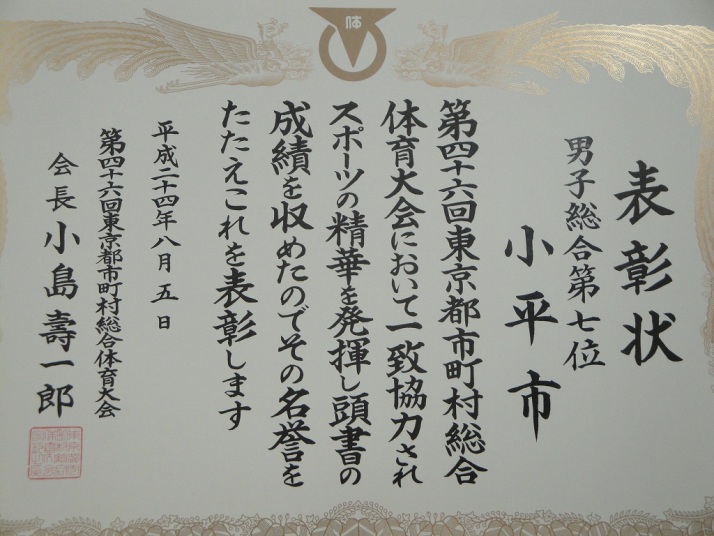 体
表彰状
男子総合第七位
小平市
第四十六回東京都市町村総合
体育大会において一致協力され
スポーツの精華を発揮し頭書の
成績を収めたのでその名誉を
たたえこれを表彰します
平成二十四年八月五日
第四十六回東京都市町村総合体育大会
会長 小島壽一郎